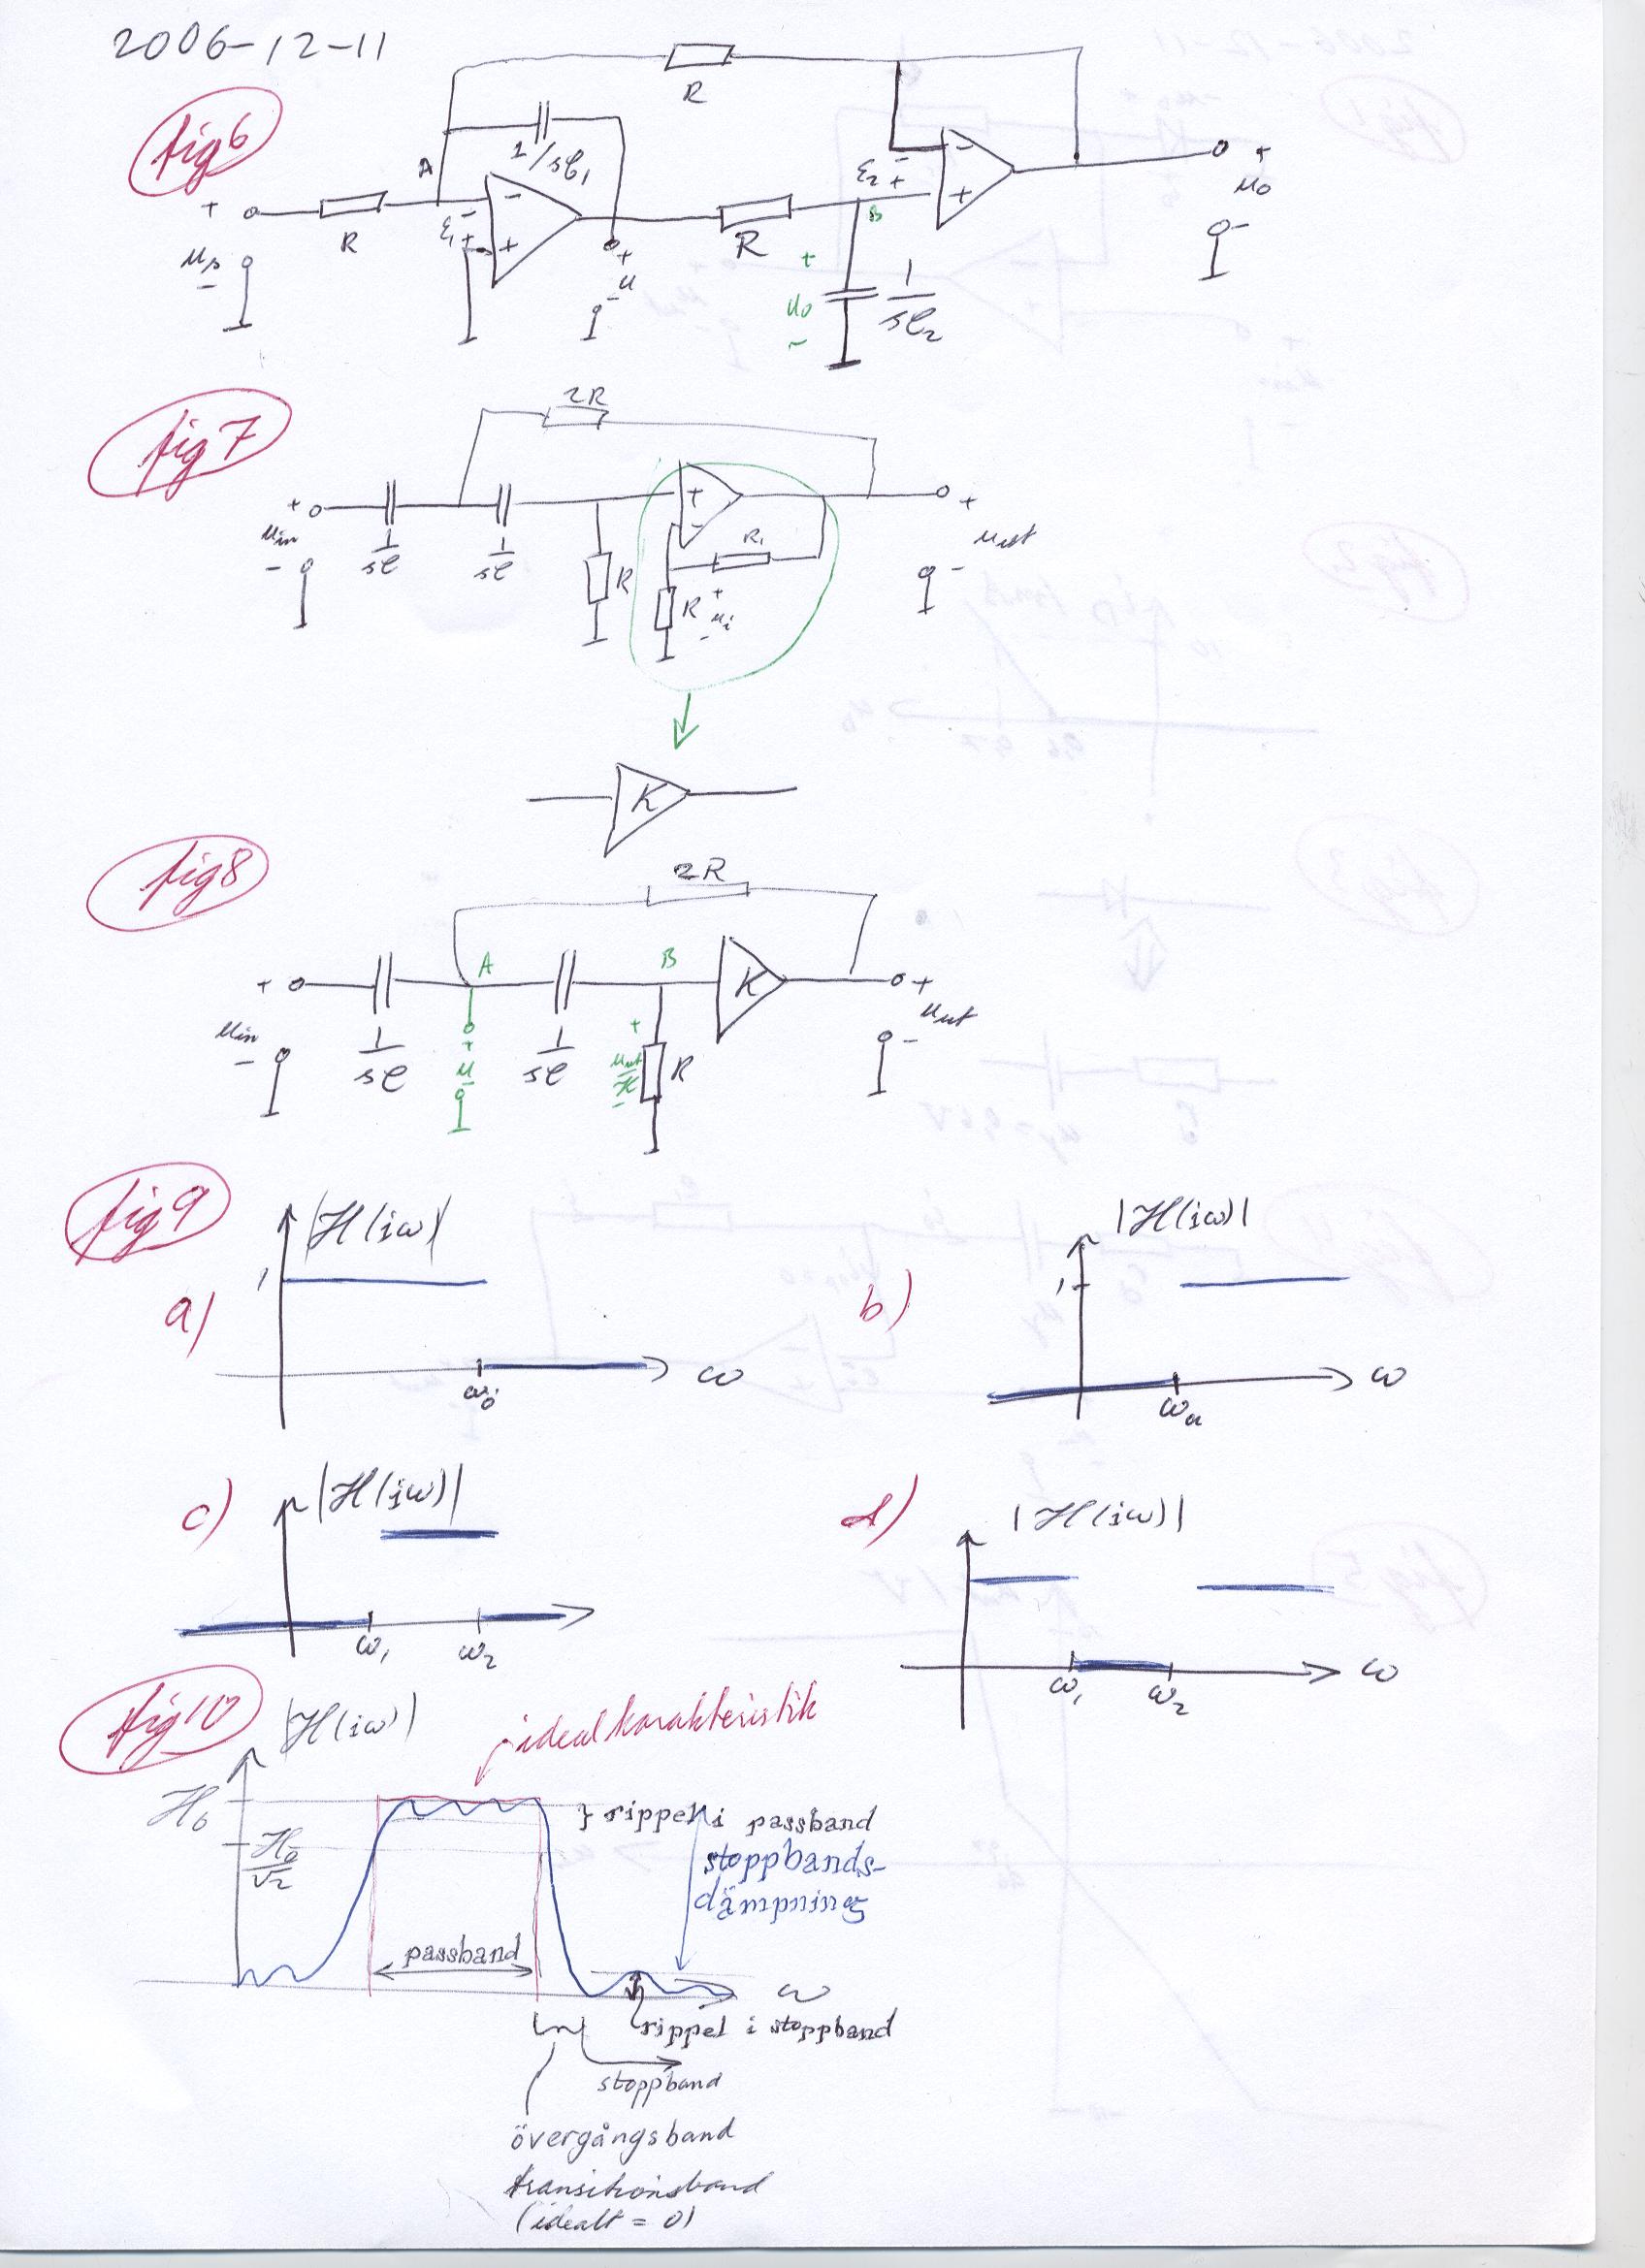 2006-12-11
fig 6
R
A
1/sC₁
+
R
ε₁
-
+
-
+
us
-
+
u
-
R
ε₂
-
+
B
-
+
+
u₀
-
+
u₀
-
1
sC₂
fig 7
2R
+
uin
-
1
sC
1
sC
R
+
-
R₁
R
+
ui
-
+
uut
-
K
fig 8
2R
+
uin
-
1
sC
A
+
u
-
1
sC
B
+
uut
K
-
R
K
+
uut
-
fig 9
a)
|H(iω)|
1
ω₀
ω
b)
|H(iω)|
1
ωu
ω
c)
|H(iω)|
ω₁
ω₂
d)
|H(iω)|
ω₁
ω₂
ω
fig 10
|H(iω)|
idealkarakteristik
H₀
H₀
√2
} rippel i passband
stoppbands-
dämpning
passband
ω
rippel i stoppband
stoppband
övergångsband
transitionsband
(idealt = 0)